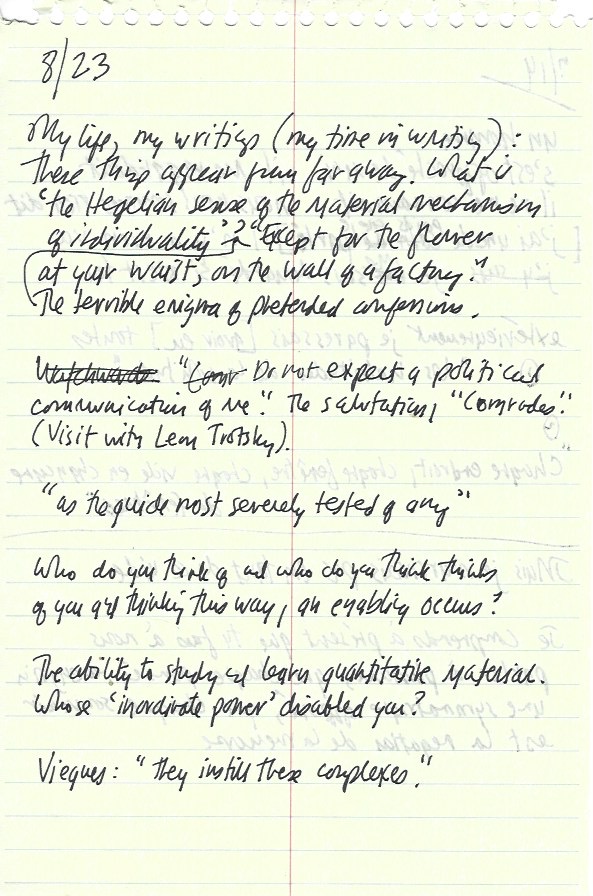 8/23
My life, my writings (my time in writing):
These things appear from far away. What is
"the Hegelian sense of the Material mechanism
of individuality"? "Except for the flower
at your waist, on the wall of a factory."
The terrible enigma of pretended confessions.
"Do not expect a political
communication of me." The salutation, "Comrades."
(Visit with Leon Trotsky).
"as the guide most severely tested of any"
Who do you think of and who do you think thinks
of you and thinking this way, an enabling occurs?
The ability to study and learn quantitative material.
Whose 'inordinate power' disabled you?
Viegues: "they instill these complexes."